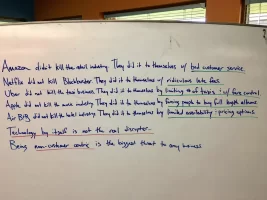 Amazon didn't kill the retail industry. They did it to themselves w/ bad customer service.
Netflix did not kill Blockbuster. They did it to themselves w/ ridiculous late fees.
Uber did not kill the taxi business. They did it to themselves by limiting # of taxis & w/ fare control
Apple did not kill the music industry. They did it to themselves by forcing people to buy full length albums
Air BNB did not kill the hotel industry. They did it to themselves by limited availability & pricing options
Technology by itself is not the real disrupter.
Being non-customer centric is the biggest threat to any business